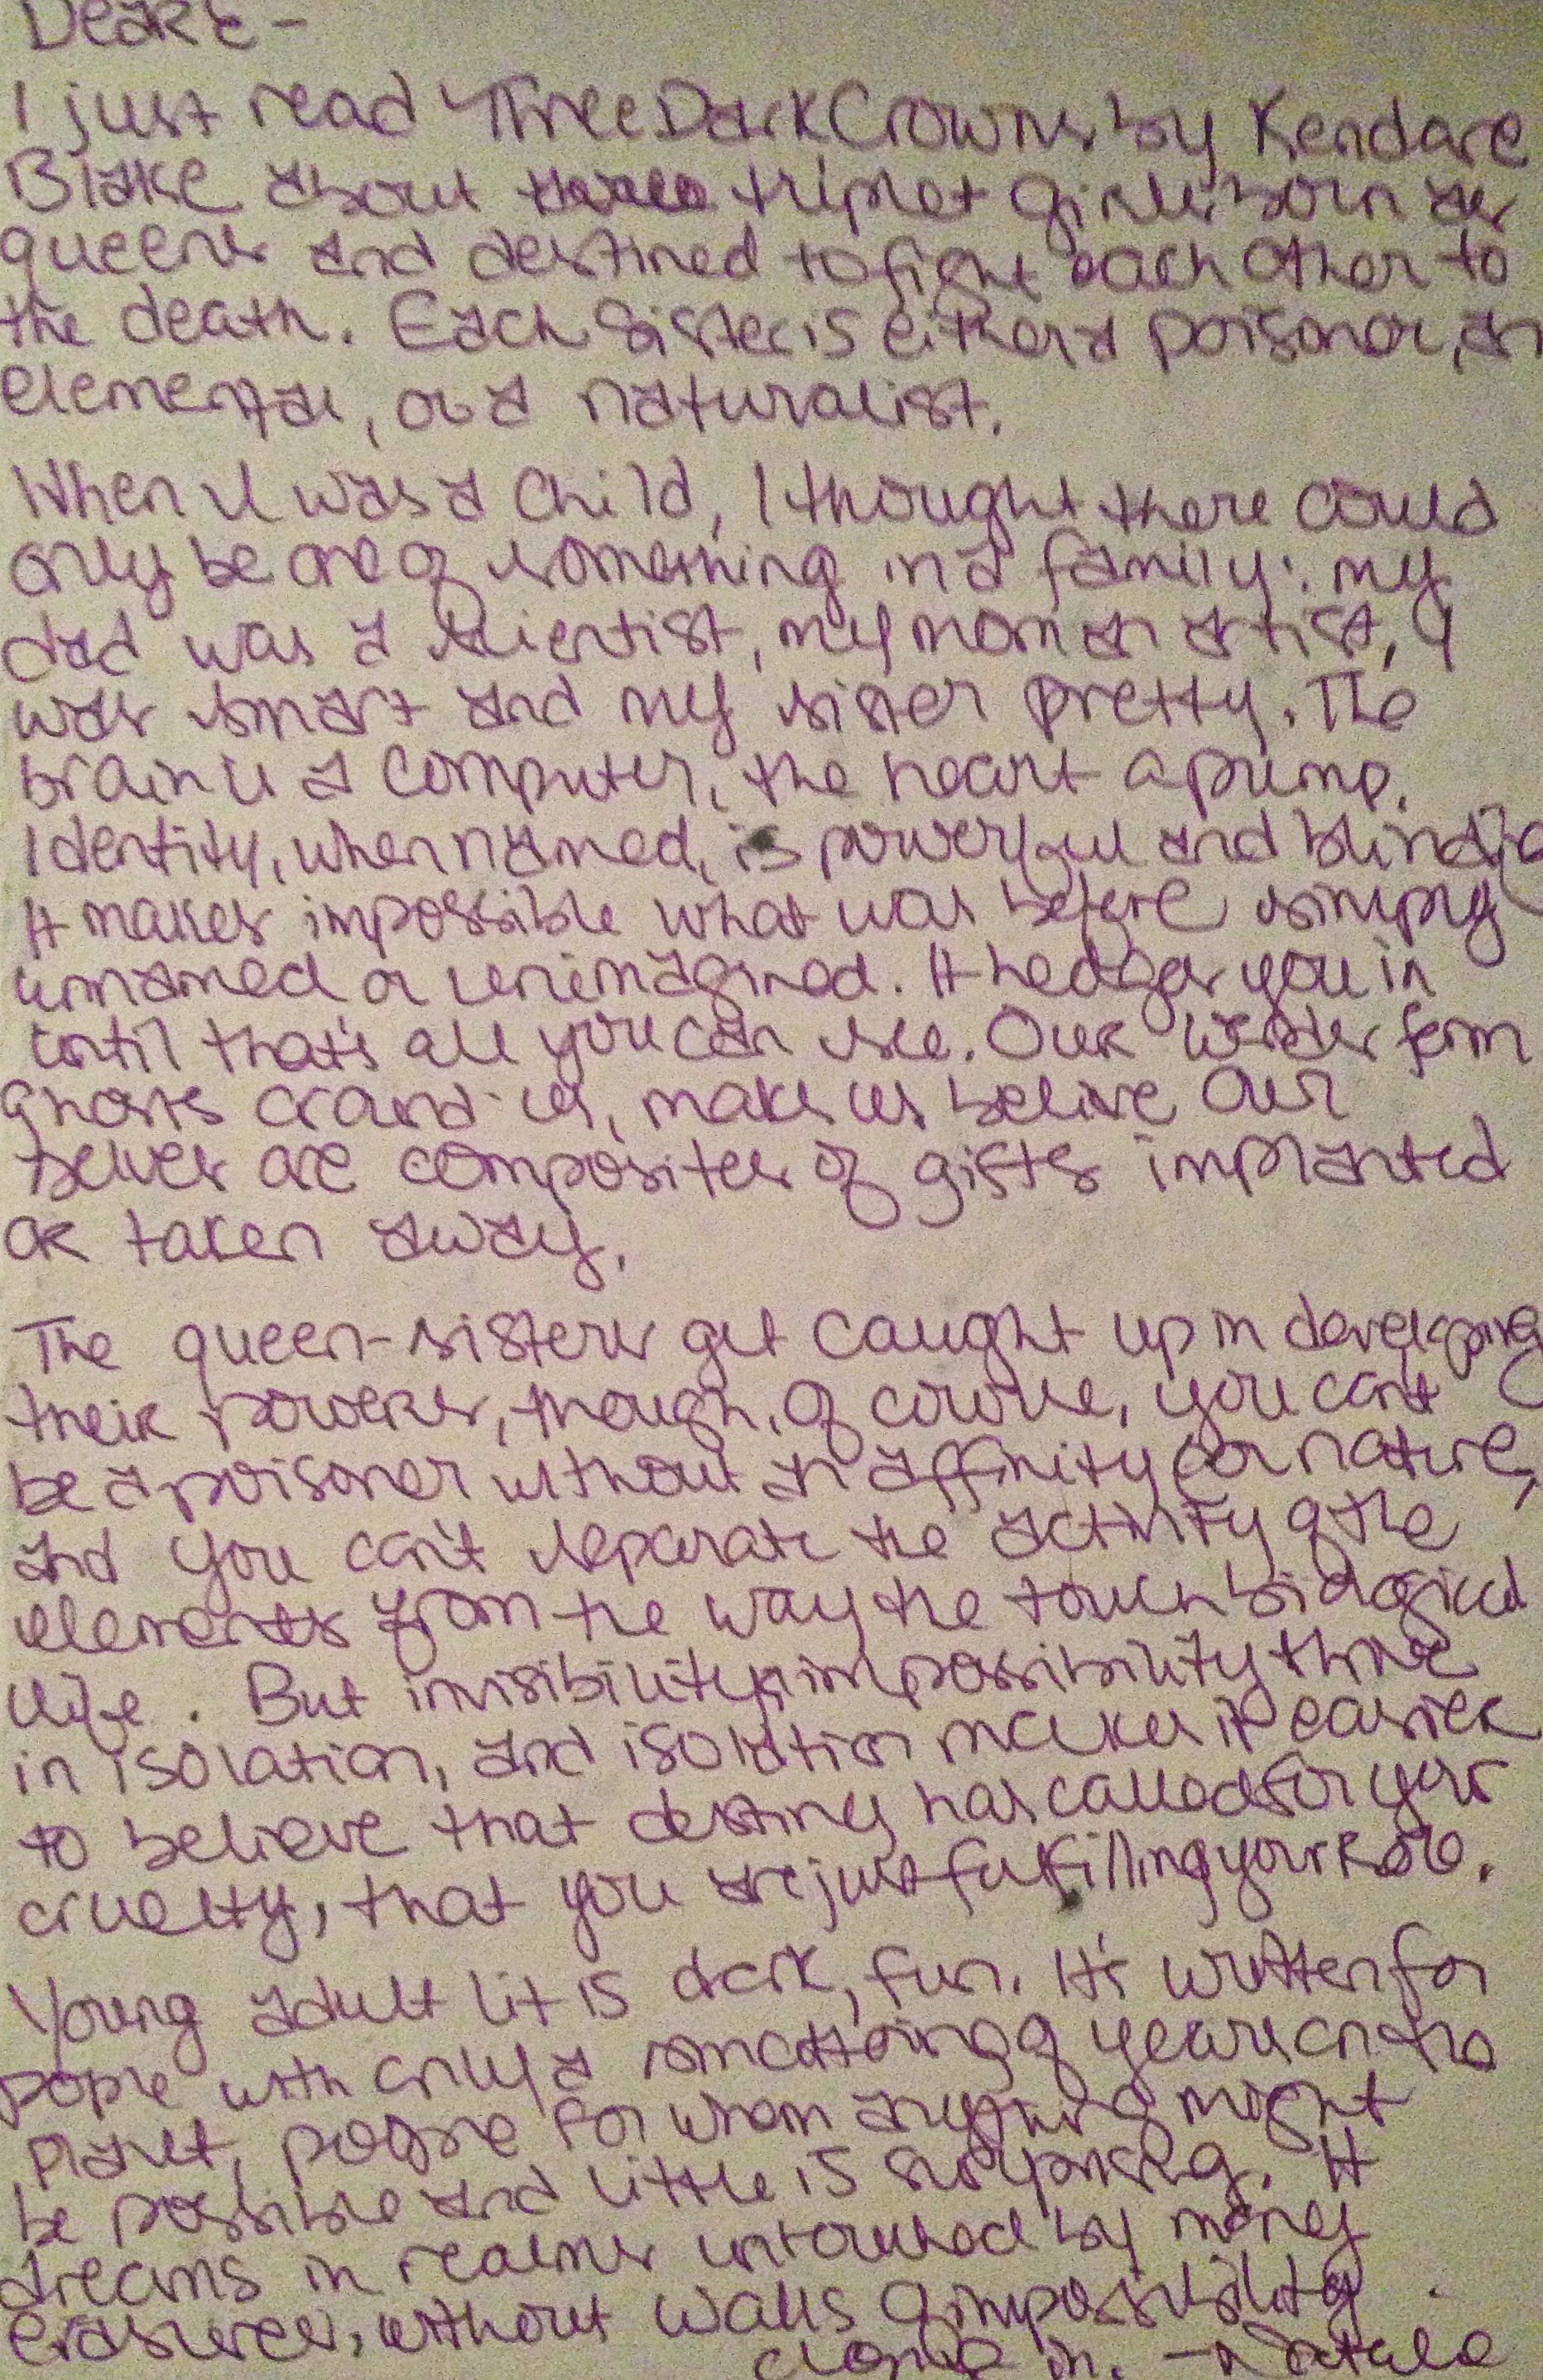 Dear E-
I just read Three Dark Crowns by Kendare
Blake about triplet girls born as
queens and destined to fight each other to
the death. Each sister is either a poisoner, an
elemental, or a naturalist.
When I was a child, I thought there could
only be one of something in a family: my
dad was a scientist, my mom an artist, I
was smart and my sister pretty. The
brain is a computer, the heart a pump.
Identity, when named, is powerful and blinding
It makes impossible what was before simply
unnamed or unimagined. It hedges you in
until that's all you can see. Our words form
ghosts around us, makes us belive our
selves are composites of gifts implanted
or taken away.
The queen-sisters get caught up in developing
their powers, though, of course, you can't
be a poisoner without an affinity for nature,
and you can't separate the activity of the
elements from the way the touch biological
life. But invisibility, impossibility thrive
in isolation, and isolation makes it easier
to believe that destiny has called for your
cruelty, that you are just fulfilling your role.
Young adult lit is dark, fun. It's written for
pople with only a smattering of years on the
planet, people for whom anything might
be possible and little is surprising. It
dreams in realms untouched by
erasures, without walls of impossibility
closing in. -Natalie